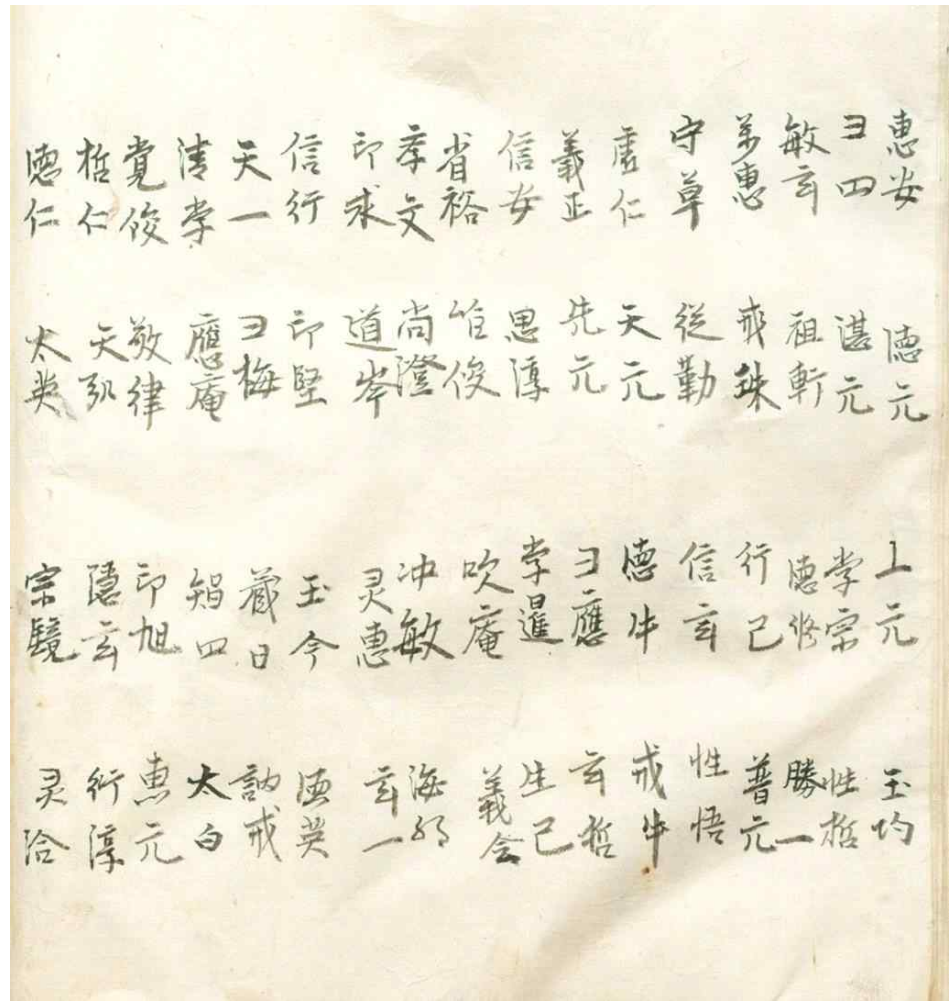 惠安 ヨ四 敏玄 惠 守草 虛仁 義正 信安 省裕 孝文 印求 信行 天一 清学 覚俊 哲仁 德仁
德元 諶元 祖軒 戒珠 從勤 天元 先元 思淳 俊 尚澄 道岑 印堅 ヨ梅 應庵 敬律 天弘 太英
上元 学宗 德修 行己 信玄 德牛 ヨ應 学暹 吹庵 冲敏 灵惠 玉今 蔵日 智四 印旭 隱玄 宗鏡
玉均 性哲 勝一 普元 性悟 戒牛 玄哲 生己 義会 海 玄一 德英 訥戒 太白 惠元 衍淳 灵洽